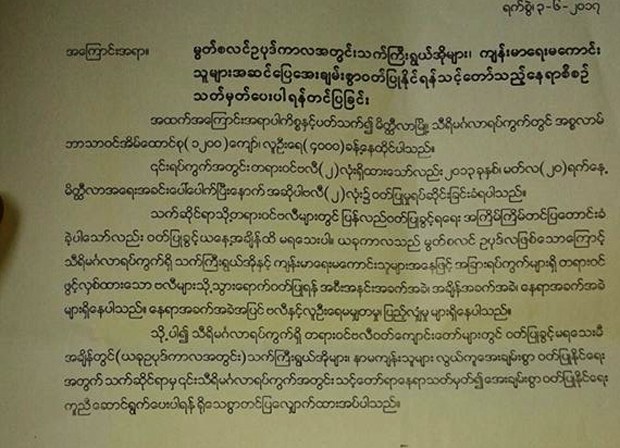 ရက်စွဲ၊ ၃-၆-၂၀၁၇
အကြောင်းအရာ။ မွတ်စလင်ဥပုဒ်ကာလအတွင်းသက်ကြီးရွယ်အိုများ၊ ကျန်းမာရေးမကောင်း
သူများအဆင်ပြေအေးချမ်းစွာဝတ်ပြုနိုင်ရန်သင့်တော်သည့်နေရာစီစဉ်
သတ်မှတ်ပေးပါရန်တင်ပြခြင်း
အထက်အကြောင်းအရာပါကိစ္စနှင့်ပတ်သက်၍ မိတ္ထီလာမြို့ သီရိမင်္ဂလာရပ်ကွက်တွင် အစ္စလာမ်
ဘာသာဝင်အိမ်ထောင်စု(၁၂၀၀)ကျော်၊ လူဦးရေ(၄၀၀၀)ခန့်နေထိုင်ပါသည်။
၎င်းရပ်ကွက်အတွင်း တရားဝင်ဗလီ(၂)လုံးရှိထားသော်လည်း ၂၀၁၃ ခုနှစ်၊ မတ်လ(၂၀)ရက်နေ့
မိတ္ထီလာအရေးအခင်းပေါ်ပေါက်ပြီးနောက် အဆိုပါဗလီ(၂)လုံး၌ ဝတ်ပြုမှုရပ်ဆိုင်းခြင်းခံရပါသည်။
သက်ဆိုင်ရာသို့ တရားဝင်ဗလီများတွင် ပြန်လည်ဝတ်ပြုခွင့်ရရေး အကြိမ်ကြိမ်တင်ပြတောင်းခံ
ခဲ့ပါသော်လည်း ဝတ်ပြုခွင့်ယနေ့အချိန်ထိ မရသေးပါ။ ယခုကာလသည် မွတ်စလင် ဥပုဒ်လဖြစ်သောကြောင့်
သီရိမင်္ဂလာရပ်ကွက်ရှိ သက်ကြီးရွယ်အိုနှင့် ကျန်းမာရေးမကောင်းသူများအနေဖြင့် အခြားရပ်ကွက်များရှိ တရားဝင်
ဖွင့်လှစ်ထားသော ဗလီများသို့သွားရောက်ဝတ်ပြုရန် အစီးအနင်းအခက်အခဲ၊ အချိန်အခက်အခဲ၊ နေရာအခက်အခဲ
များရှိနေပါသည်။ နေရာအခက်အခဲအပြင် ဗလီနှင့်လူဦးရေမမျှတမှု၊ ပြည့်လျှံမှု များရှိနေပါသည်။
သို့ပါ၍ သီရိမင်္ဂလာရပ်ကွက်ရှိ တရားဝင်ဗလီဝတ်ကျောင်းတော်များတွင် ဝတ်ပြုခွင့်မရသေးမီ
အချိန်တွင်(ယခုဥပုဒ်ကာလအတွင်း)သက်ကြီးရွယ်အိုများ၊ နာမကျန်းသူများ လွယ်ကူအေးချမ်းစွာ ဝတ်ပြုနိုင်ရေး
အတွက် သက်ဆိုင်ရာမှ ၎င်းသီရိမင်္ဂလာရပ်ကွက်အတွင်းသင့်တော်ရာနေရာသတ်မှတ်၍အေးချမ်းစွာ ဝတ်ပြုနိုင်ရေး
ကူညီ ဆောင်ရွက်ပေးပါရန် ရိုသေစွာတင်ပြလျှောက်ထားအပ်ပါသည်။